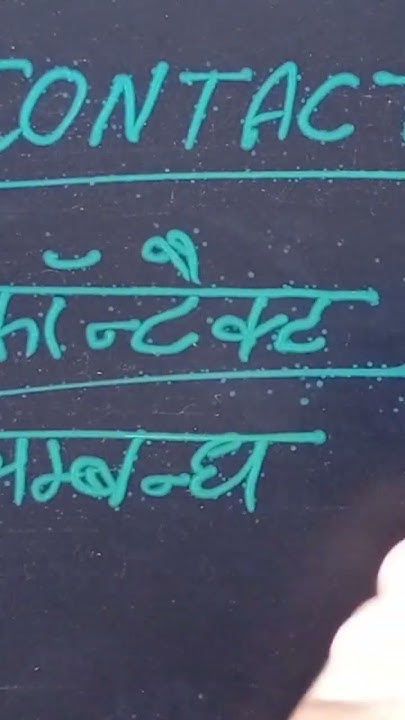 CONTACT
कॉन्टैक्ट
सम्बन्ध